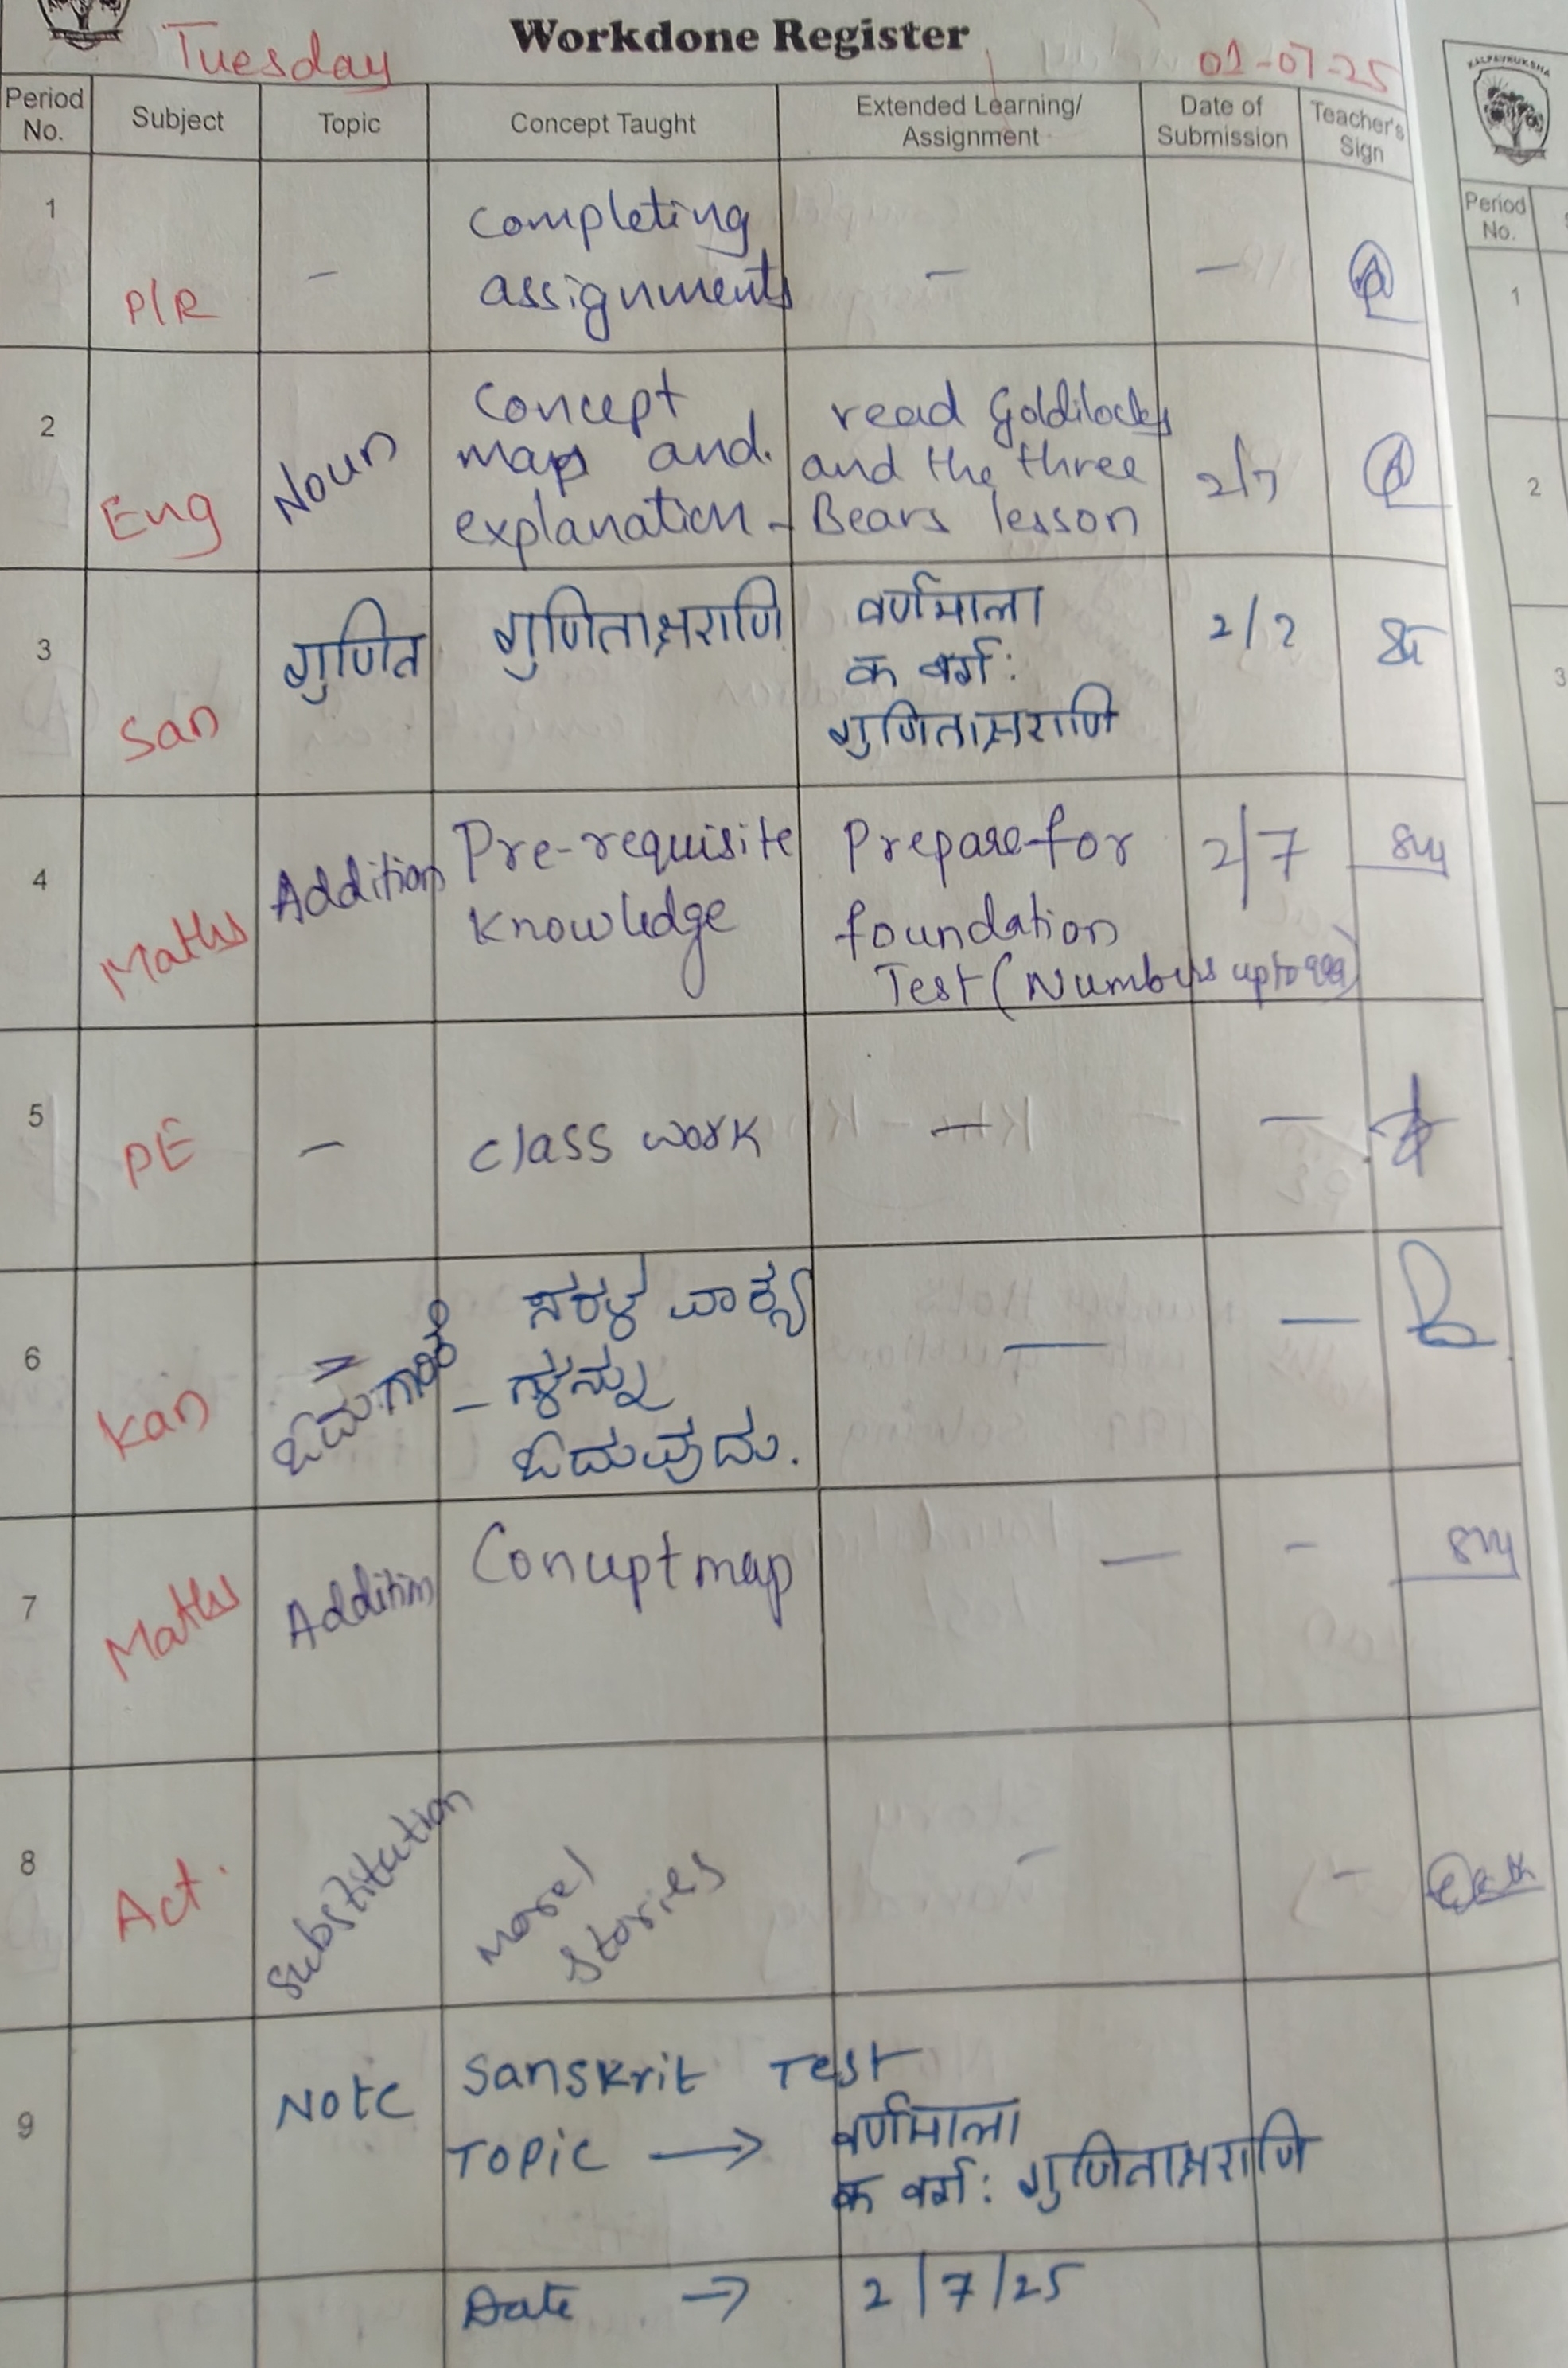 Workdone Register
Tuesday 01-07-25
Period No. Subject Topic Concept Taught Extended Learning/ Assignment Date of Submission Teacher's Sign
1 P/R - completing assignments - -
2 Eng Noun Concept maps and explanation - read Goldilocks and the three Bears lesson 2/7
3 San गुणित गुणिताक्षराणि वर्णमाला क वर्ग: गुणिताक्षराणि 2/7
4 Maths Addition Pre-requisite Knowledge Prepare for foundation Test (Numbers upto 999) 2/7
5 PE - class work - -
6 Kan ಓದುಗಾರಿಕೆ - ಸರಳ ವಾಕ್ಯ ಗಳನ್ನು ಓದುವುದು. - -
7 Maths Addition Concept map - -
8 Act. Substitution Morel stories - -
9 Note Sanskrit Test
Topic → वर्णमाला
क वर्ग: गुणिताक्षराणि
Date → 2/7/25
KALPAVRUKSHA
Period No.
1
2
3